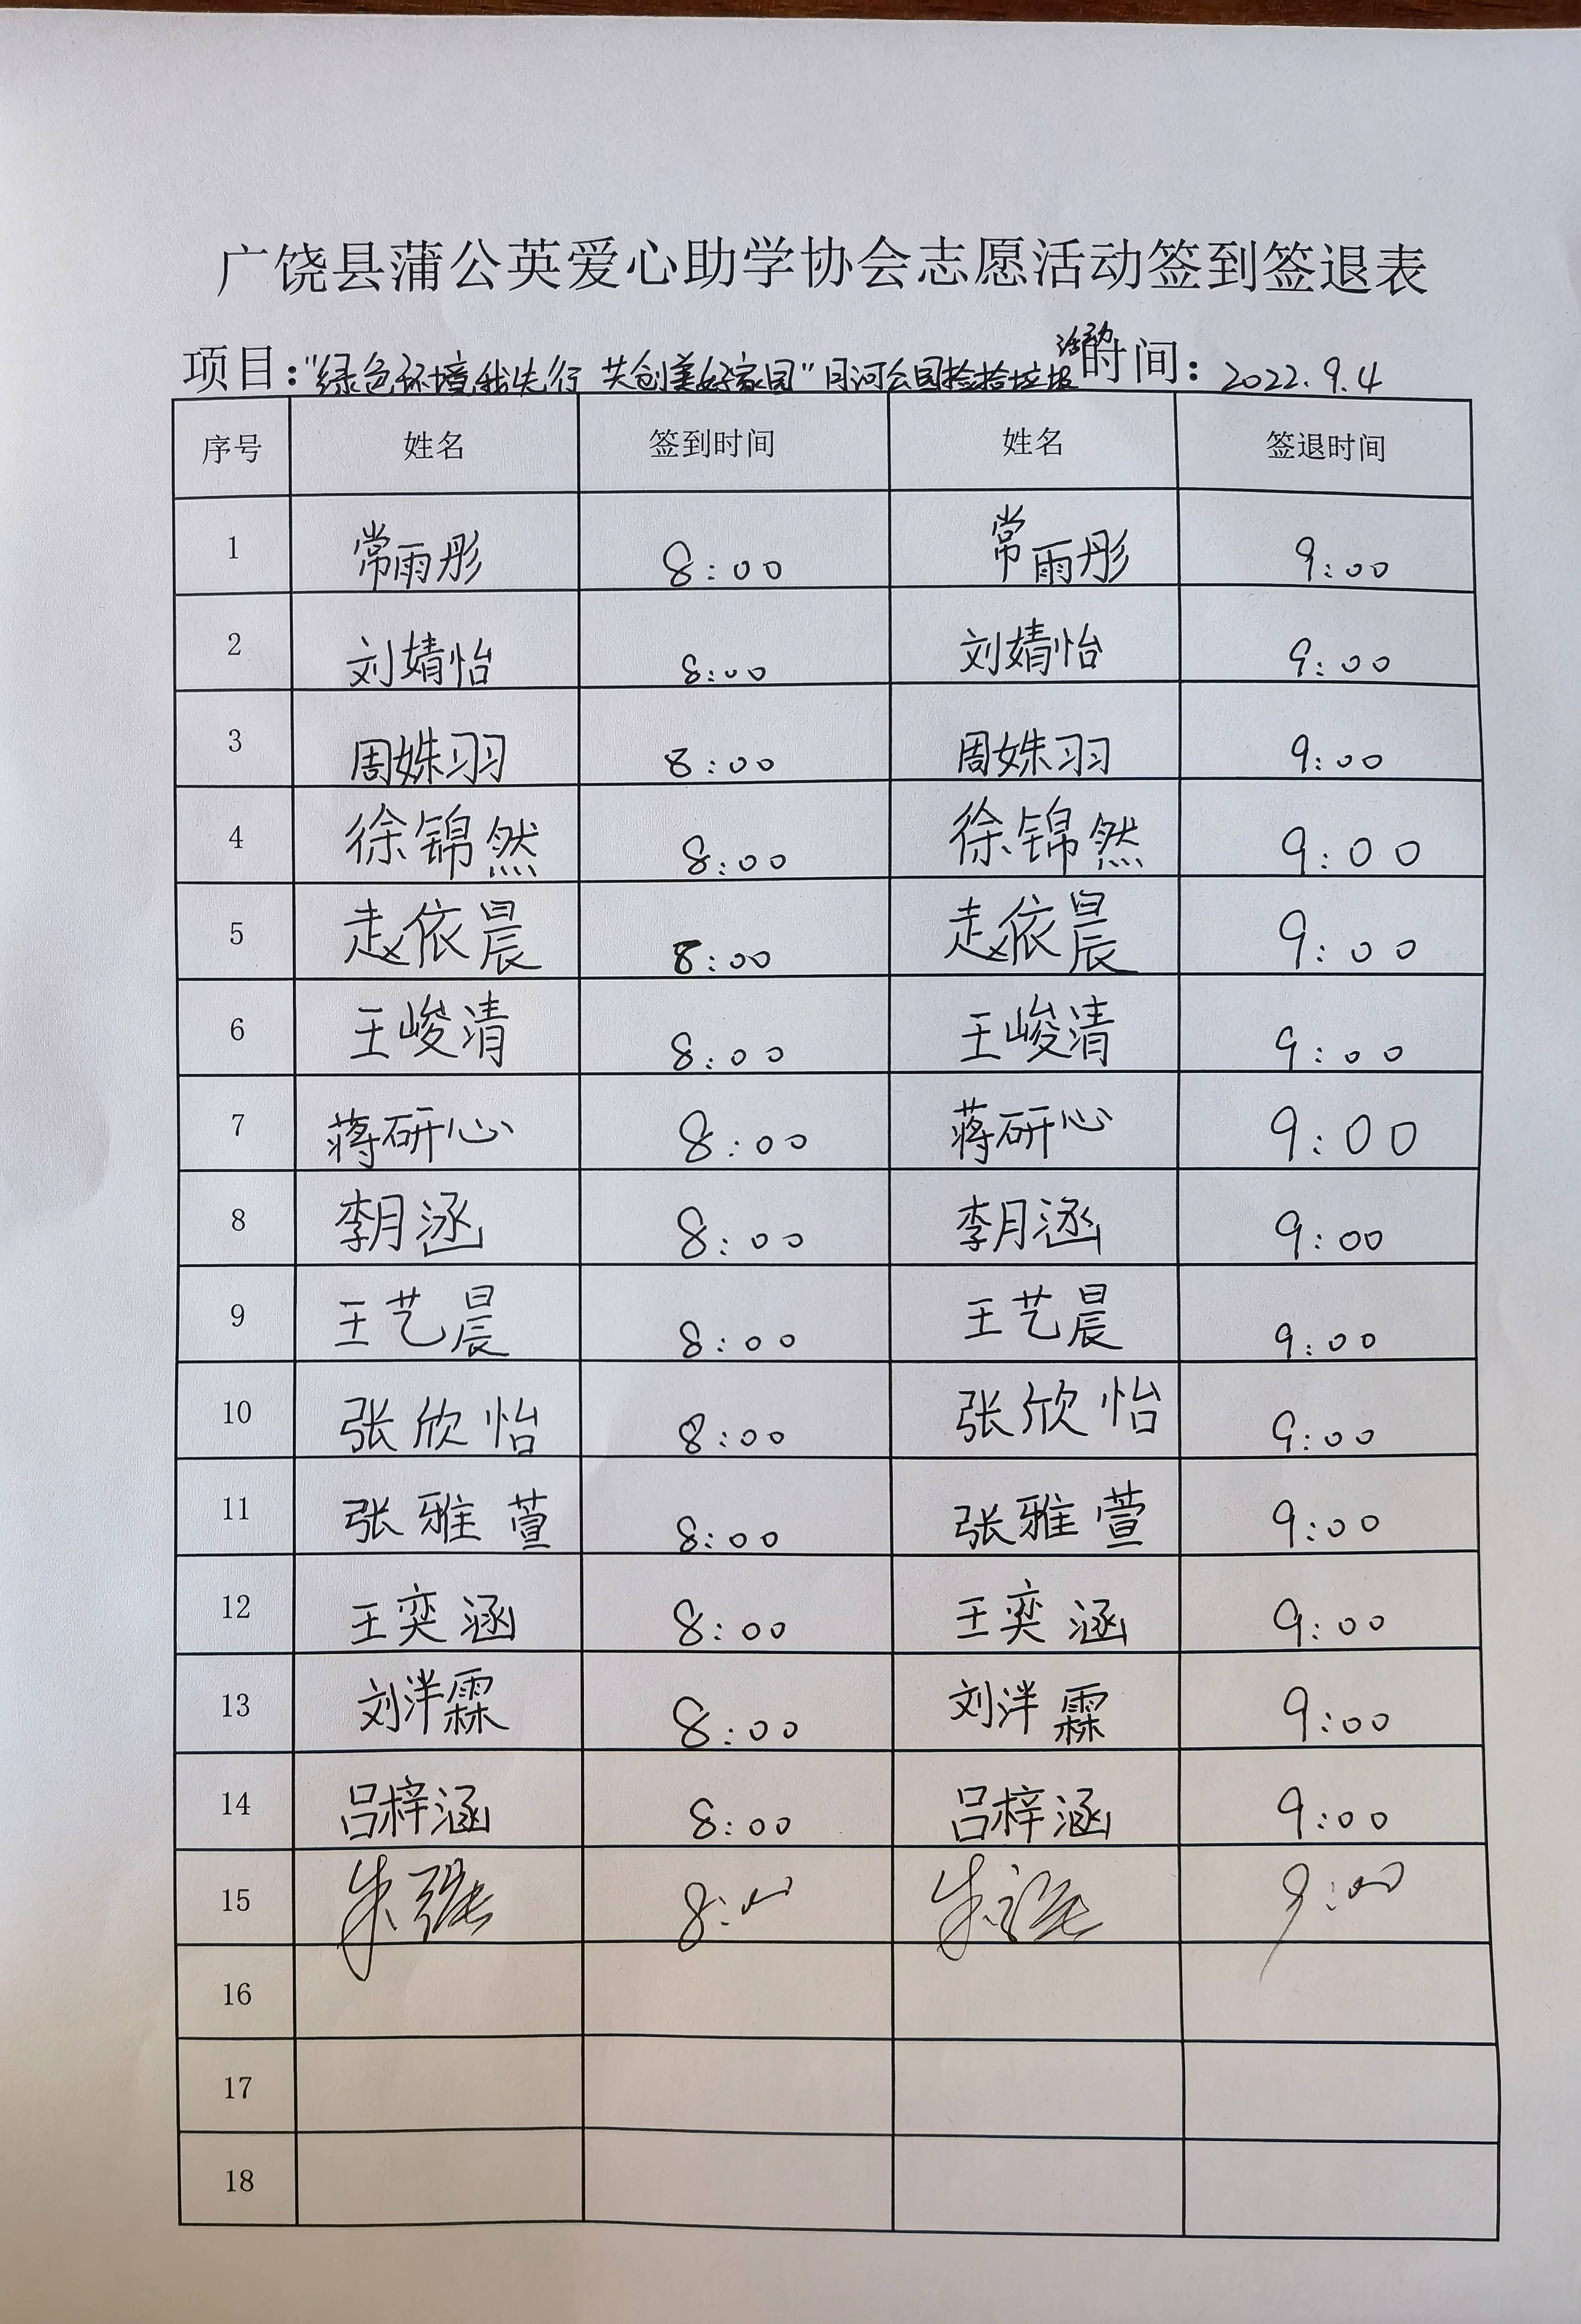 广饶县蒲公英爱心助学协会志愿活动签到签退表
项目："绿色环境我先行 共创美好家园"月河公园捡拾垃圾活动 时间：2022.9.4
序号 姓名 签到时间 姓名 签退时间
1 常雨彤 8:00 常雨彤 9:00
2 刘婧怡 8:00 刘婧怡 9:00
3 周姝羽 8:00 周姝羽 9:00
4 徐锦然 8:00 徐锦然 9:00
5 赵依晨 8:00 赵依晨 9:00
6 王峻清 8:00 王峻清 9:00
7 蒋研心 8:00 蒋研心 9:00
8 李月涵 8:00 李月涵 9:00
9 王艺晨 8:00 王艺晨 9:00
10 张欣怡 8:00 张欣怡 9:00
11 张雅萱 8:00 张雅萱 9:00
12 王奕涵 8:00 王奕涵 9:00
13 刘洋霖 8:00 刘洋霖 9:00
14 吕梓涵 8:00 吕梓涵 9:00
15 朱 8:00 朱 9:00
16
17
18